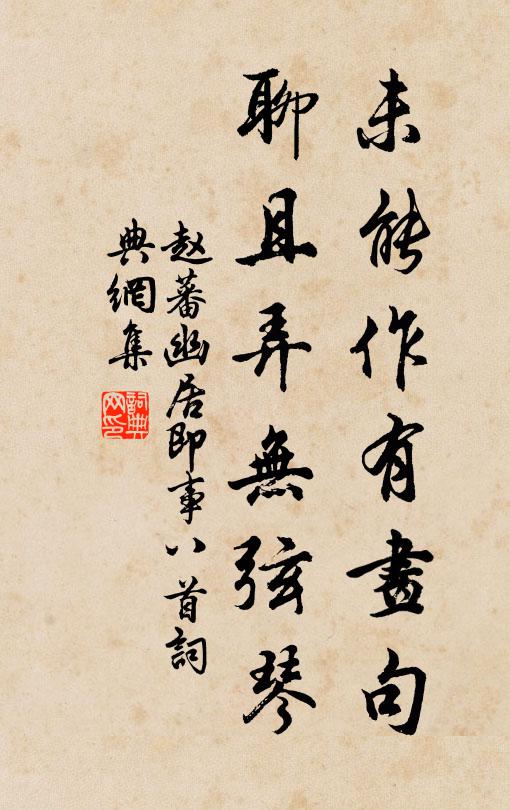 未能作有畫句
聊且弄無弦琴
赵蕃幽居即事八首詞
典網集
詞典
网印